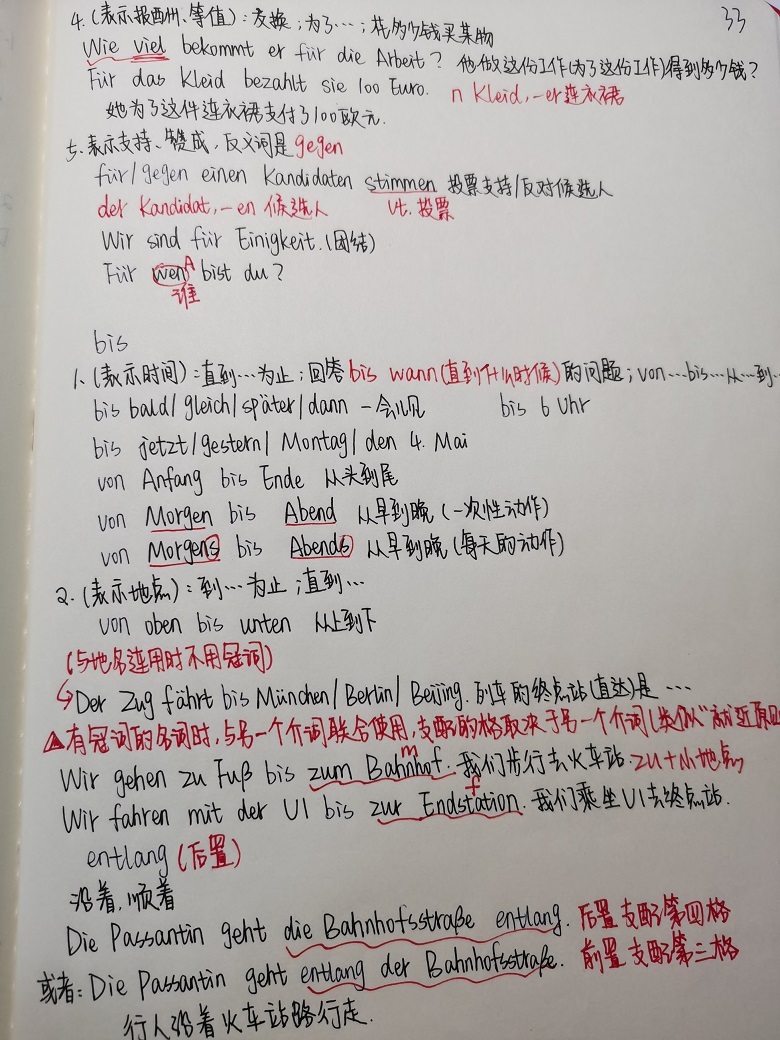 33
4. (表示报酬、等值)：交换；为了…；花多少钱买某物
Wie viel bekommt er für die Arbeit？ 他做这份工作(为了这份工作)得到多少钱？
Für das Kleid bezahlt sie 100 Euro. n Kleid, -er 连衣裙
她为了这件连衣裙支付了100欧元.
5. 表示支持、赞成，反义词是 gegen
für/gegen einen Kandidaten stimmen 投票支持/反对候选人
der Kandidat, -en 候选人 vt. 投票
Wir sind für Einigkeit. (团结)
A
Für wen bist du？
谁
bis
1. (表示时间)：直到…为止；回答 bis wann (直到什么时候) 的问题；von…bis…从…到…
bis bald/gleich/später/dann 一会儿见 bis 6 Uhr
bis jetzt/gestern/Montag/den 4. Mai
von Anfang bis Ende 从头到尾
von Morgen bis Abend 从早到晚 (一次性动作)
von Morgens bis Abends 从早到晚 (每天的动作)
2. (表示地点)：到…为止；直到…
von oben bis unten 从上到下
(与地名连用时不用冠词)
Der Zug fährt bis München/Berlin/Beijing. 列车的终点站(直达)是 …
有冠词的名词时，与另一个介词联合使用，支配的格取决于另一个介词(类似"就近原则
m
Wir gehen zu Fuß bis zum Bahnhof. 我们步行去火车站. zu+小地点
f
Wir fahren mit der U1 bis zur Endstation. 我们乘坐U1去终点站.
entlang (后置)
沿着，顺着
Die Passantin geht die Bahnhofsstraße entlang. 后置 支配第四格
或者：Die Passantin geht entlang der Bahnhofsstraße. 前置 支配第三格
行人沿着火车站路行走.